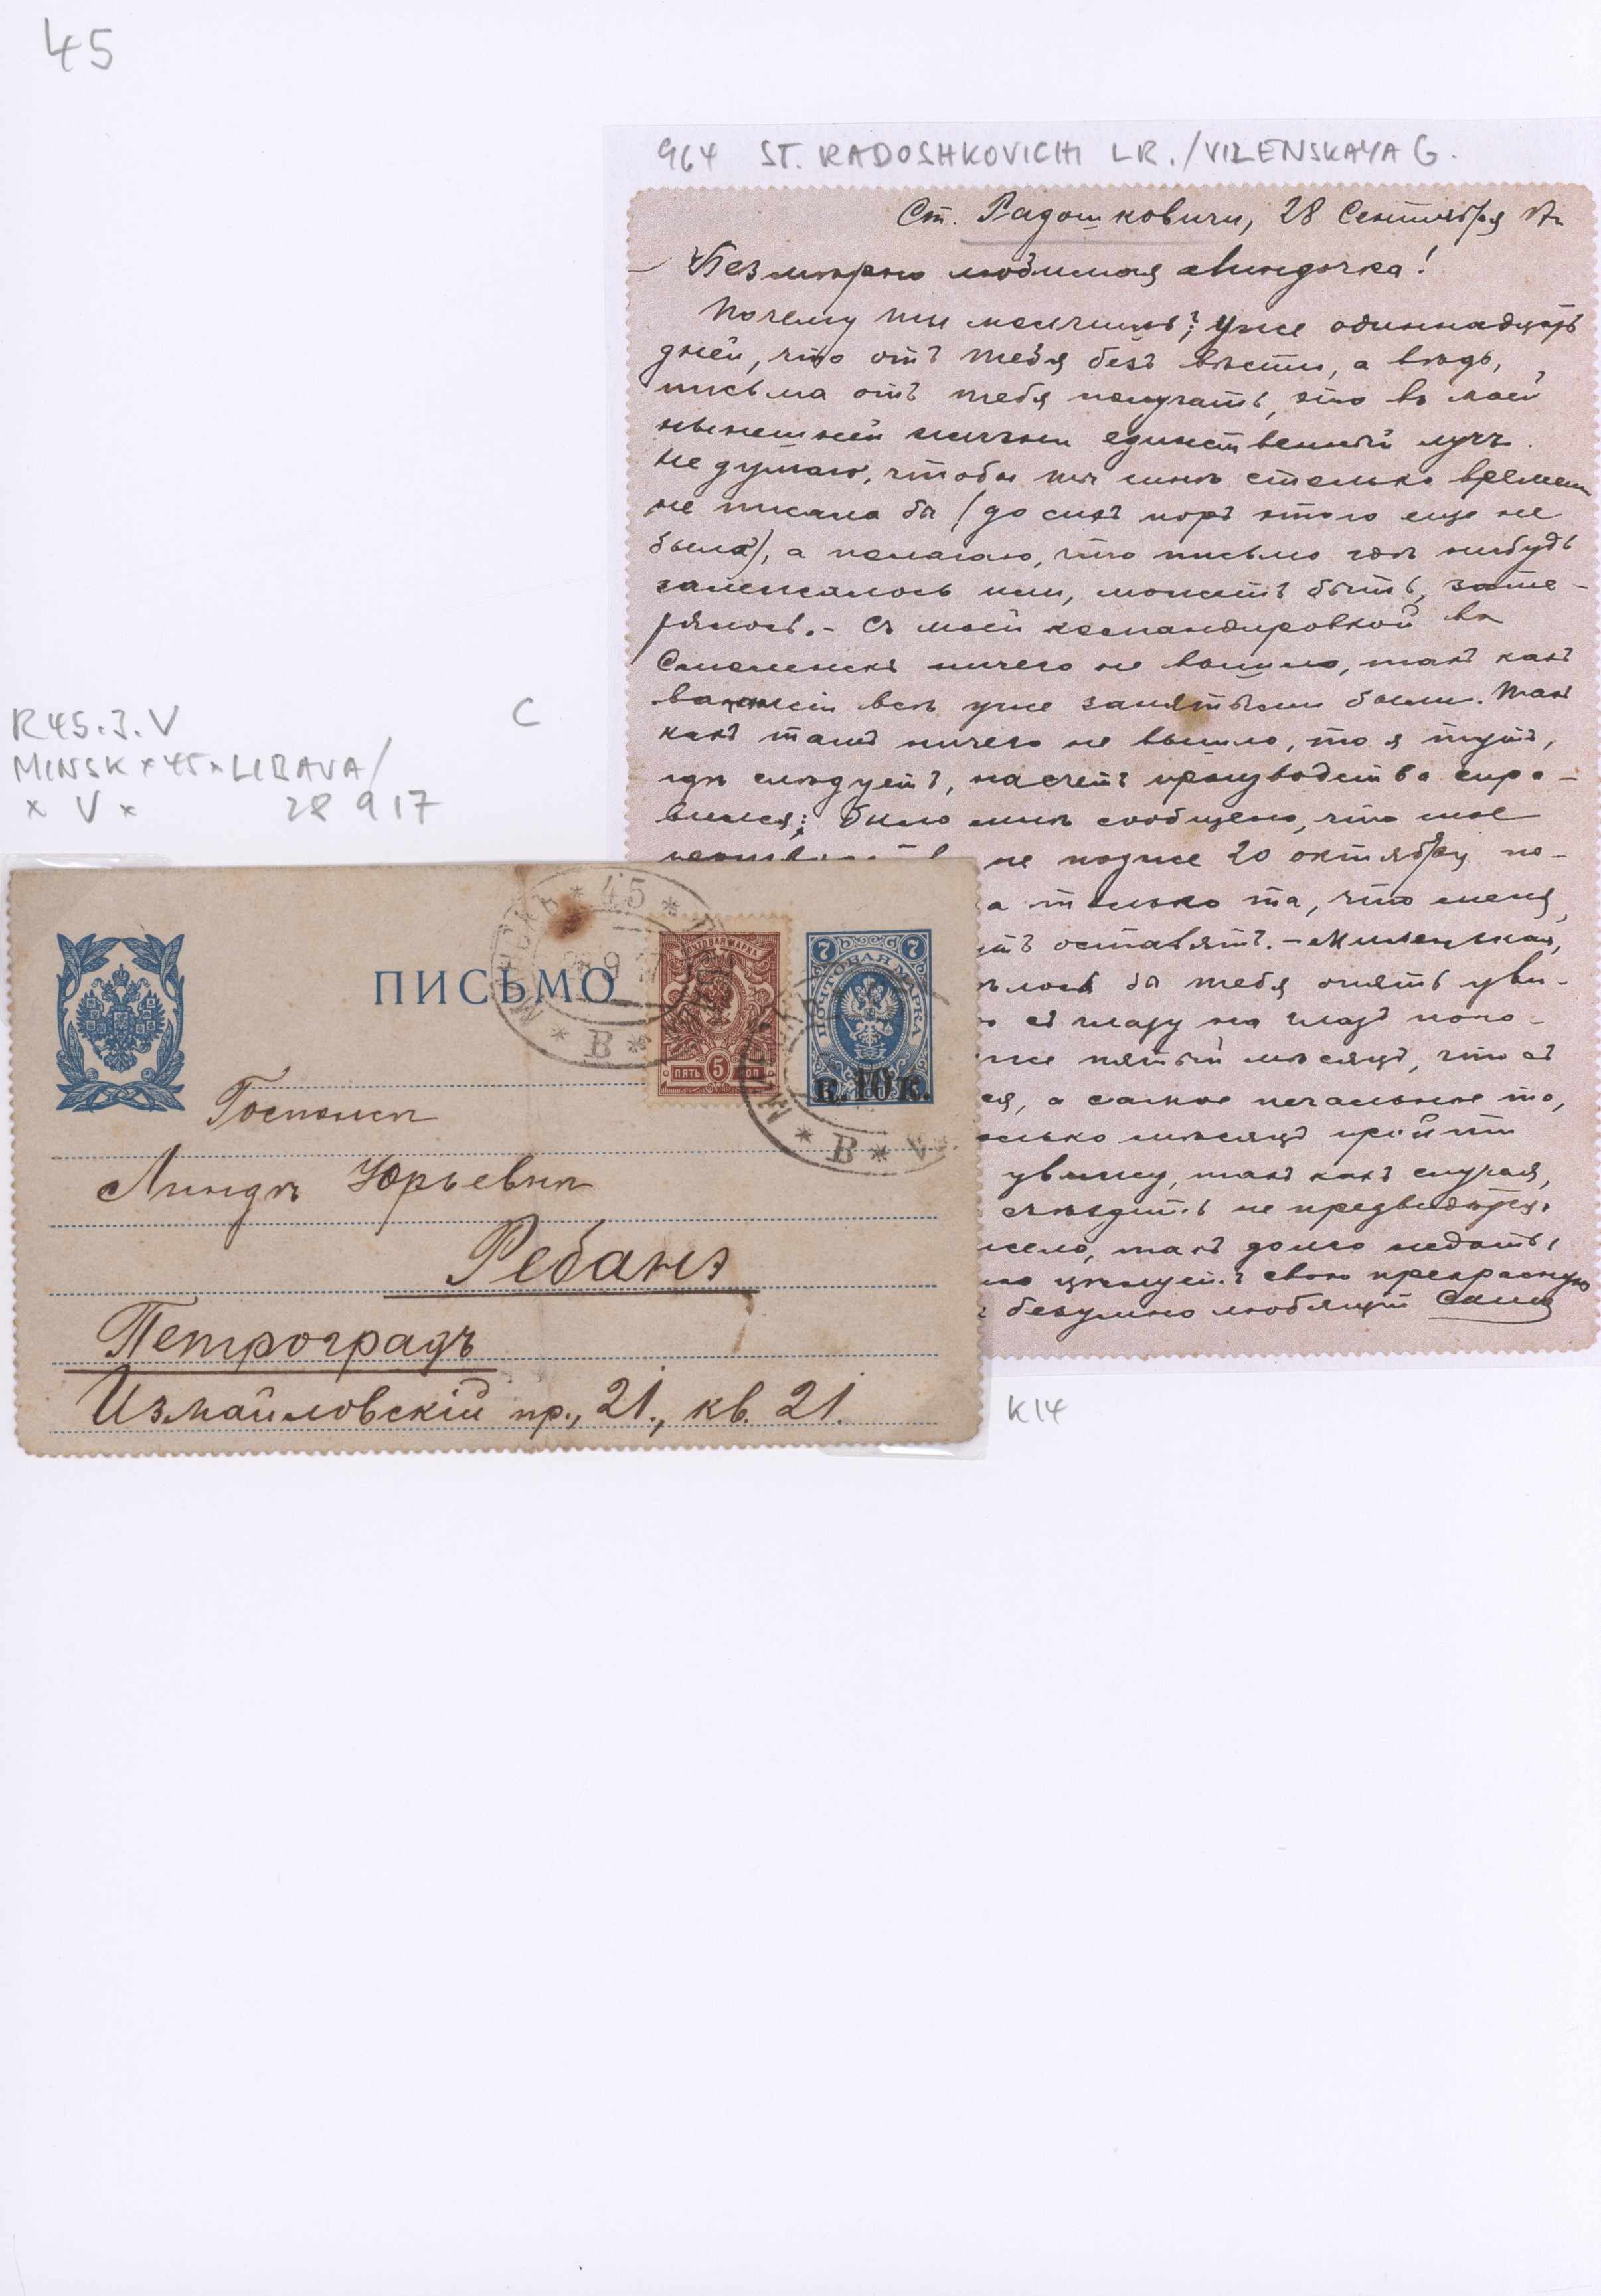 45
964 ST. RADOSHKOVICHI LR./VILENSKAYA G.
Ст. Радошковичи, 28 Сентября 17 г.
Безмѣрно любимая Линдочка!
Почему ты молчишь? Уже одиннадцать
дней, что отъ тебя безъ вѣсти, а вѣдь,
письма отъ тебя получать, это въ моей
нынешней жизни единственный лучъ.
Не думаю, чтобы ты мнѣ столько времени
не писала бы (до сихъ поръ этого еще не
было), а полагаю, что письмо гдѣ нибудь
залежалось или, можетъ быть, зате-
рялось. - Съ моей командировкой въ
Смоленскъ ничего не вышло, такъ какъ
вакансіи всѣ уже занятыми были. Такъ
какъ тамъ ничего не вышло, то я тутъ,
гдѣ слѣдуетъ, насчетъ производства спра-
вился; было мнѣ сообщено, что мое
не позже 20 октября по-
а только та, что меня,
оставятъ. - Миленькая,
бы тебя опять уви-
съ глазу на глазъ пого-
пятый мѣсяцъ, что съ
а самое печальное то,
мѣсяцъ пройти
увижу, такъ какъ случая,
съѣздить не предвидится.
такъ долго ждать,
цѣлуетъ свою прекрасную
безумно любящій Саша
R45.3.V
C
MINSK x 45 x LIBAVA/
x V x 28 9 17
МИНСКЪ * 45 *
28 9 17
* В *
ПИСЬМО
ПОЧТОВАЯ МАРКА
ПЯТЬ 5 КОП
7 7
ПОЧТОВАЯ МАРКА
к. 10 к.
* В *
Госпожѣ
Линдѣ Юрьевнѣ
Ребанэ
Петроградъ
Измайловскій пр., 21., кв. 21.
K14